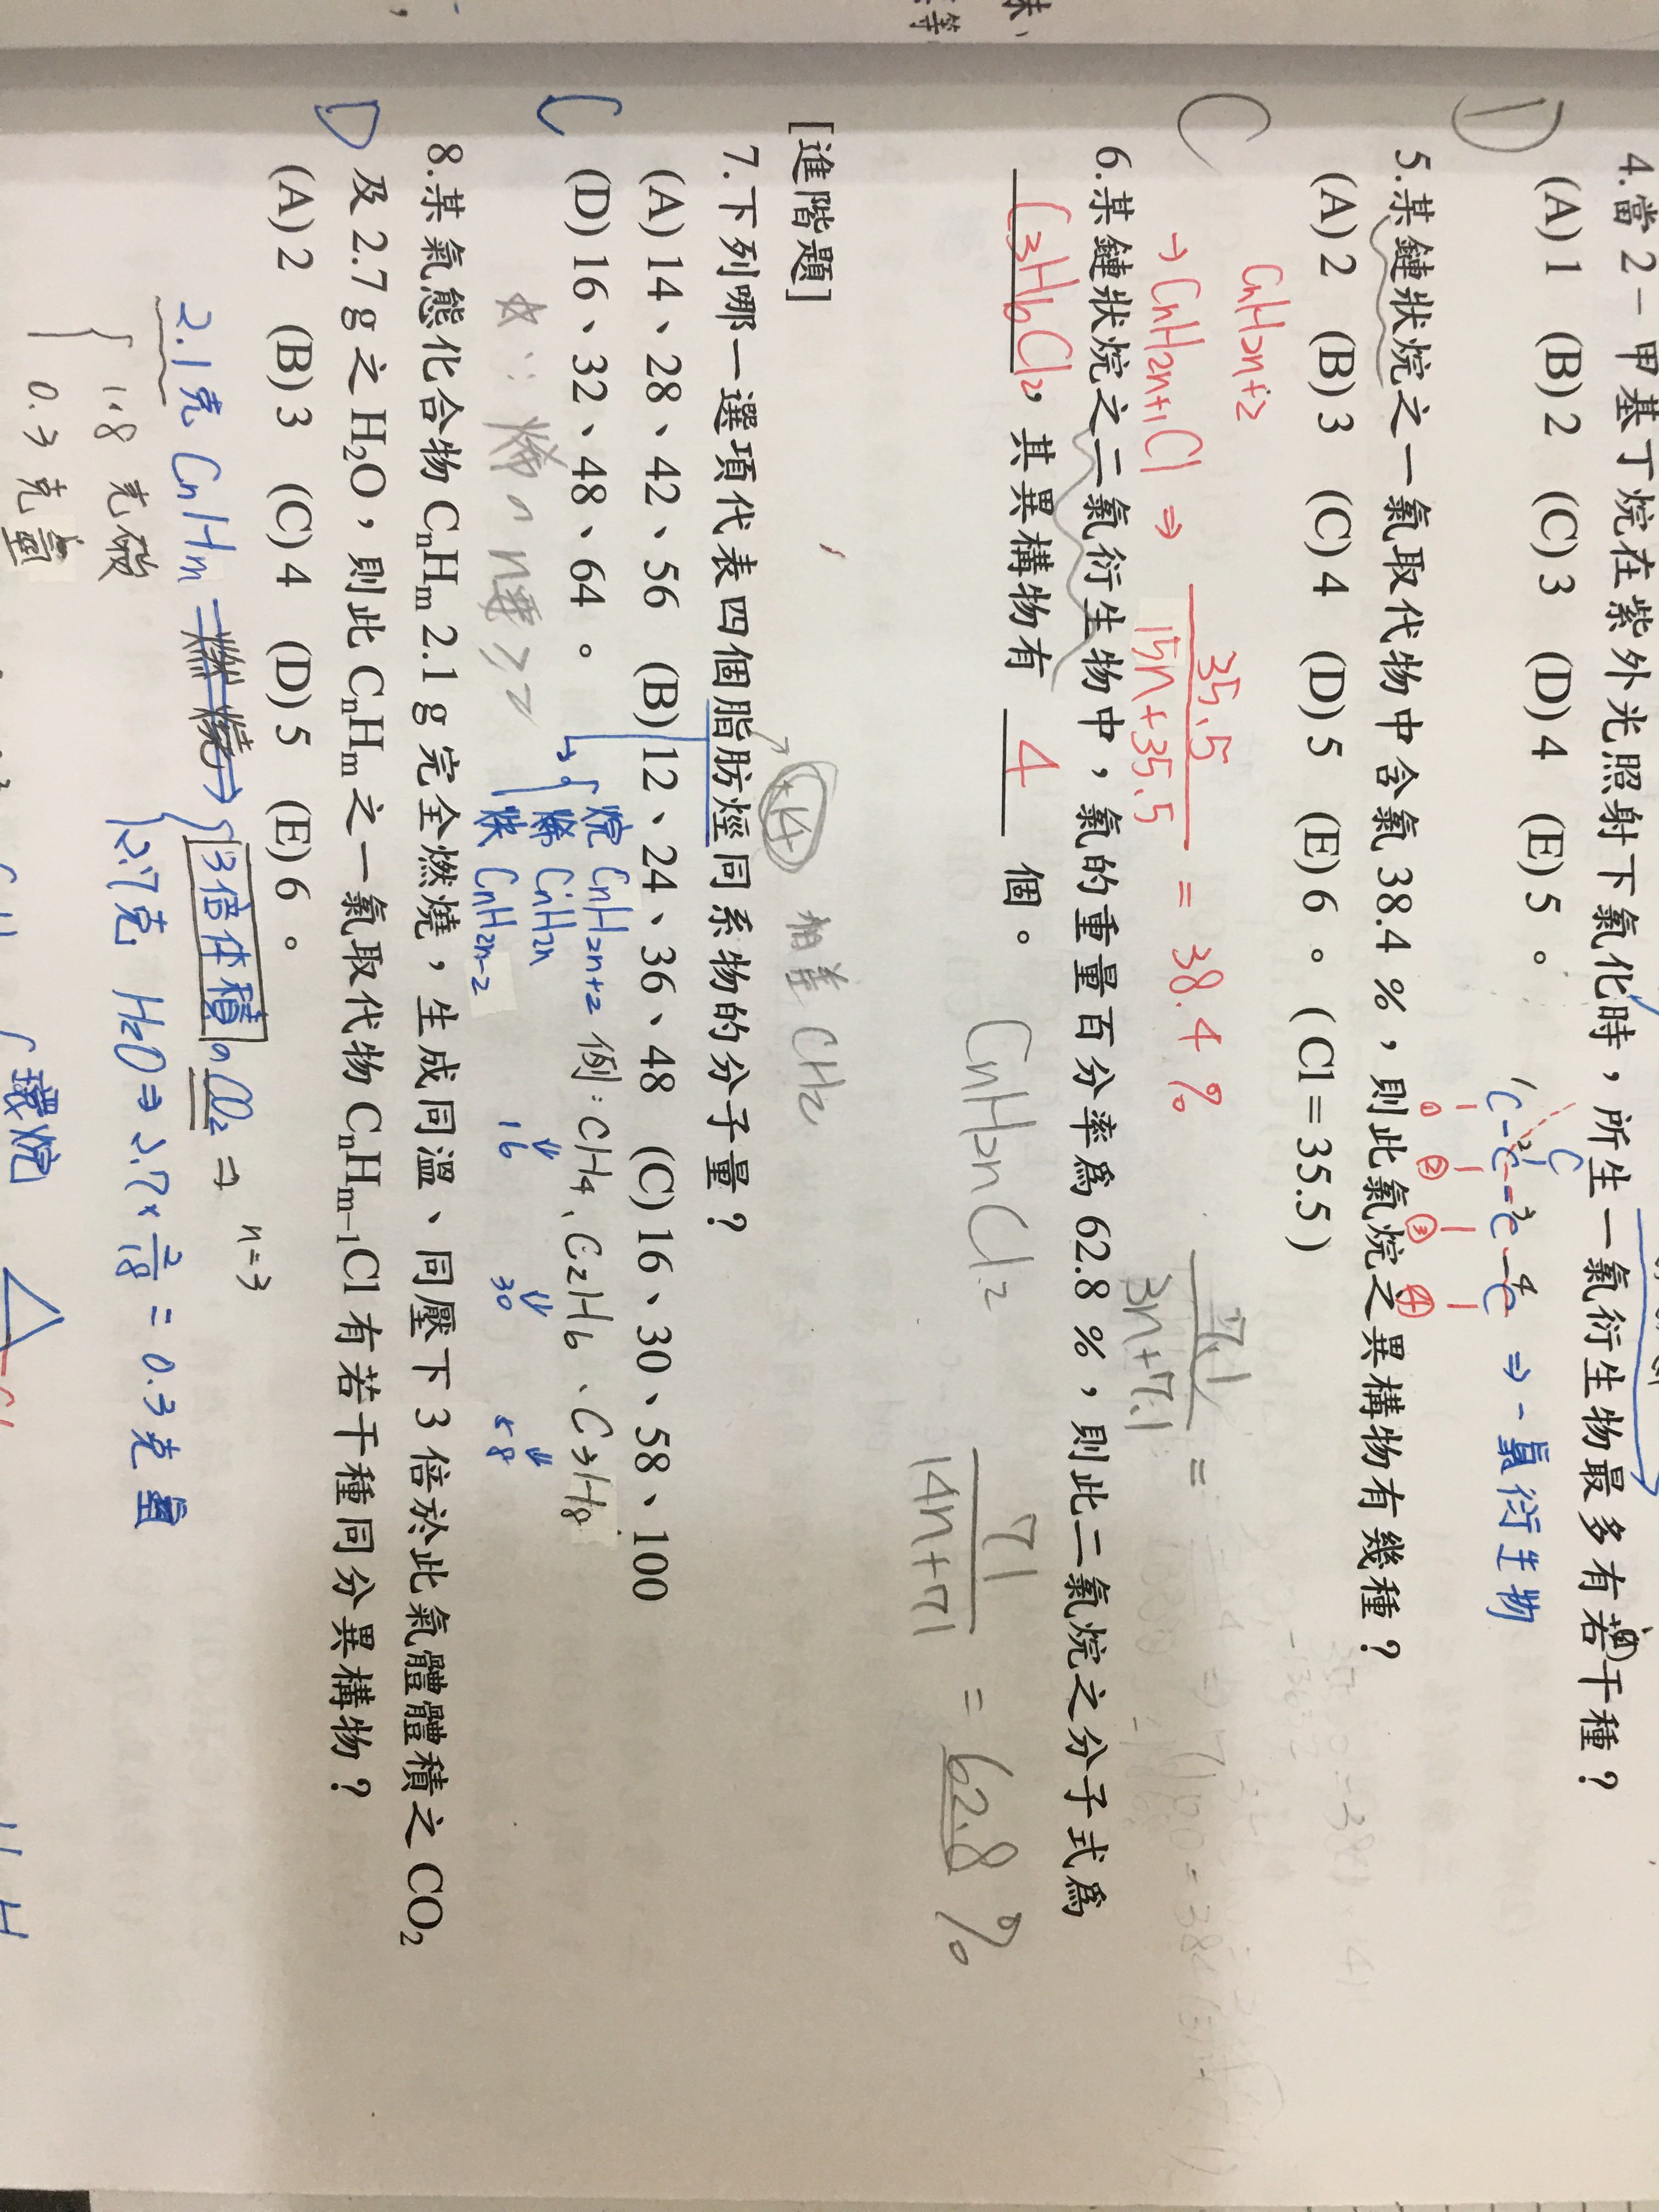 4.當2－甲基丁烷在紫外光照射下氯化時，所生一氯衍生物最多有若干種？
(A) 1 (B) 2 (C) 3 (D) 4 (E) 5 。
D
⇒ 一氯衍生物
5.某鏈狀烷之一氯取代物中含氯 38.4 %，則此氯烷之異構物有幾種？
(A) 2 (B) 3 (C) 4 (D) 5 (E) 6 。( Cl = 35.5 )
C
CnH2n+2
→ CnH2n+1Cl ⇒ 35.5 / 15n+35.5 = 38.4 %
71 / 3n+71 =
6.某鏈狀烷之二氯衍生物中，氯的重量百分率爲 62.8 %，則此二氯烷之分子式爲
C3H6Cl2，其異構物有 4 個。
CnH2nCl2
71 / 14n+71 = 62.8 %
[進階題]
+14 相差 CH2
7.下列哪一選項代表四個脂肪烴同系物的分子量？
(A) 14、28、42、56 (B) 12、24、36、48 (C) 16、30、58、100
C
(D) 16、32、48、64 。
烷 CnH2n+2 例：CH4、C2H6、C3H8
烯 CnH2n
炔 CnH2n-2
16 30 58
8.某氣態化合物 CnHm 2.1 g 完全燃燒，生成同溫、同壓下 3 倍於此氣體體積之 CO2
及 2.7 g 之 H2O，則此 CnHm 之一氯取代物 CnHm−1Cl 有若干種同分異構物？
D
(A) 2 (B) 3 (C) 4 (D) 5 (E) 6 。
2.1克 CnHm 燃燒→ 3倍体積 CO2 ⇒ n=3
2.7克 H2O ⇒ 2.7× 2/18 = 0.3克氫
1.8 克碳
0.3 克氫
環烷